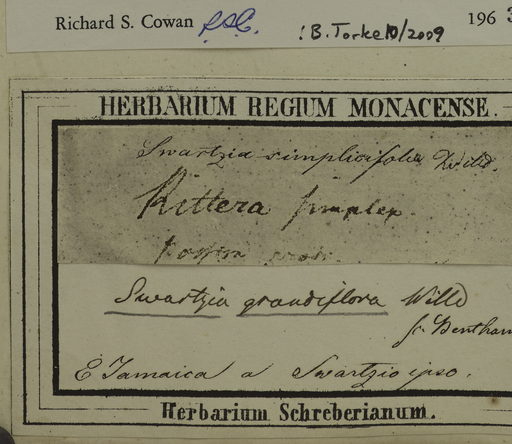 Richard S. Cowan RSC. !B. Torke 10/2009 196
HERBARIUM REGIUM MONACENSE.
Swartzia simplicifolia Willd.
Rittera simplex
Swartzia grandiflora Willd
fr. Bentham
E Jamaica a Swartzio ipso.
Herbarium Schreberianum.